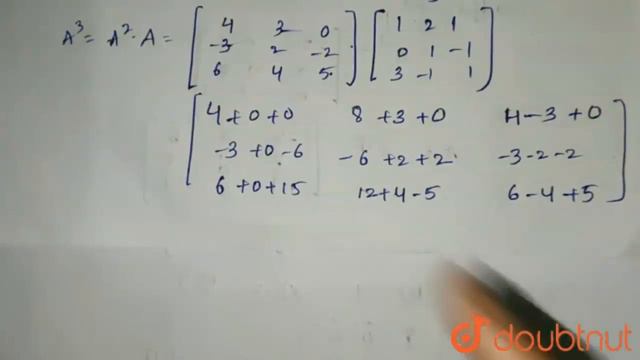 A³ = A²·A = [ 4 3 0 ] [ 1 2 1 ]
[ -3 2 -2 ] [ 0 1 -1 ]
[ 6 4 5 ] [ 3 -1 1 ]
[ 4+0+0 8+3+0 4-3+0 ]
[ -3+0-6 -6+2+2 -3-2-2 ]
[ 6+0+15 12+4-5 6-4+5 ]
doubtnut